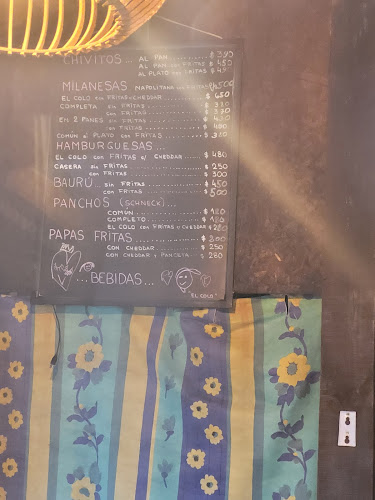 CHIVITOS... AL PAN......... $ 390
AL PAN con FRITAS $ 450
AL PLATO con FRITAS $
MILANESAS NAPOLITANA con FRITAS $ 500
EL COLO sin FRITAS+CHEDDAR......... $ 450
COMPLETA sin FRITAS......... $
con FRITAS......... $
EN 2 PANES sin FRITAS......... $
con FRITAS......... $
COMÚN al PLATO con FRITAS......... $
HAMBURGUESAS...
EL COLO con FRITAS c/ CHEDDAR......... $ 480
CASERA sin FRITAS......... $ 250
con FRITAS......... $ 300
BAURÚ... sin FRITAS......... $ 450
con FRITAS......... $ 500
PANCHOS (SCHNECK)...
COMÚN......... $
COMPLETO......... $
EL COLO con FRITAS y CHEDDAR $ 280
PAPAS FRITAS......... $ 200
CON CHEDDAR......... $ 250
CON CHEDDAR y PANCETA... $ 280
...BEBIDAS...
"EL COLO"